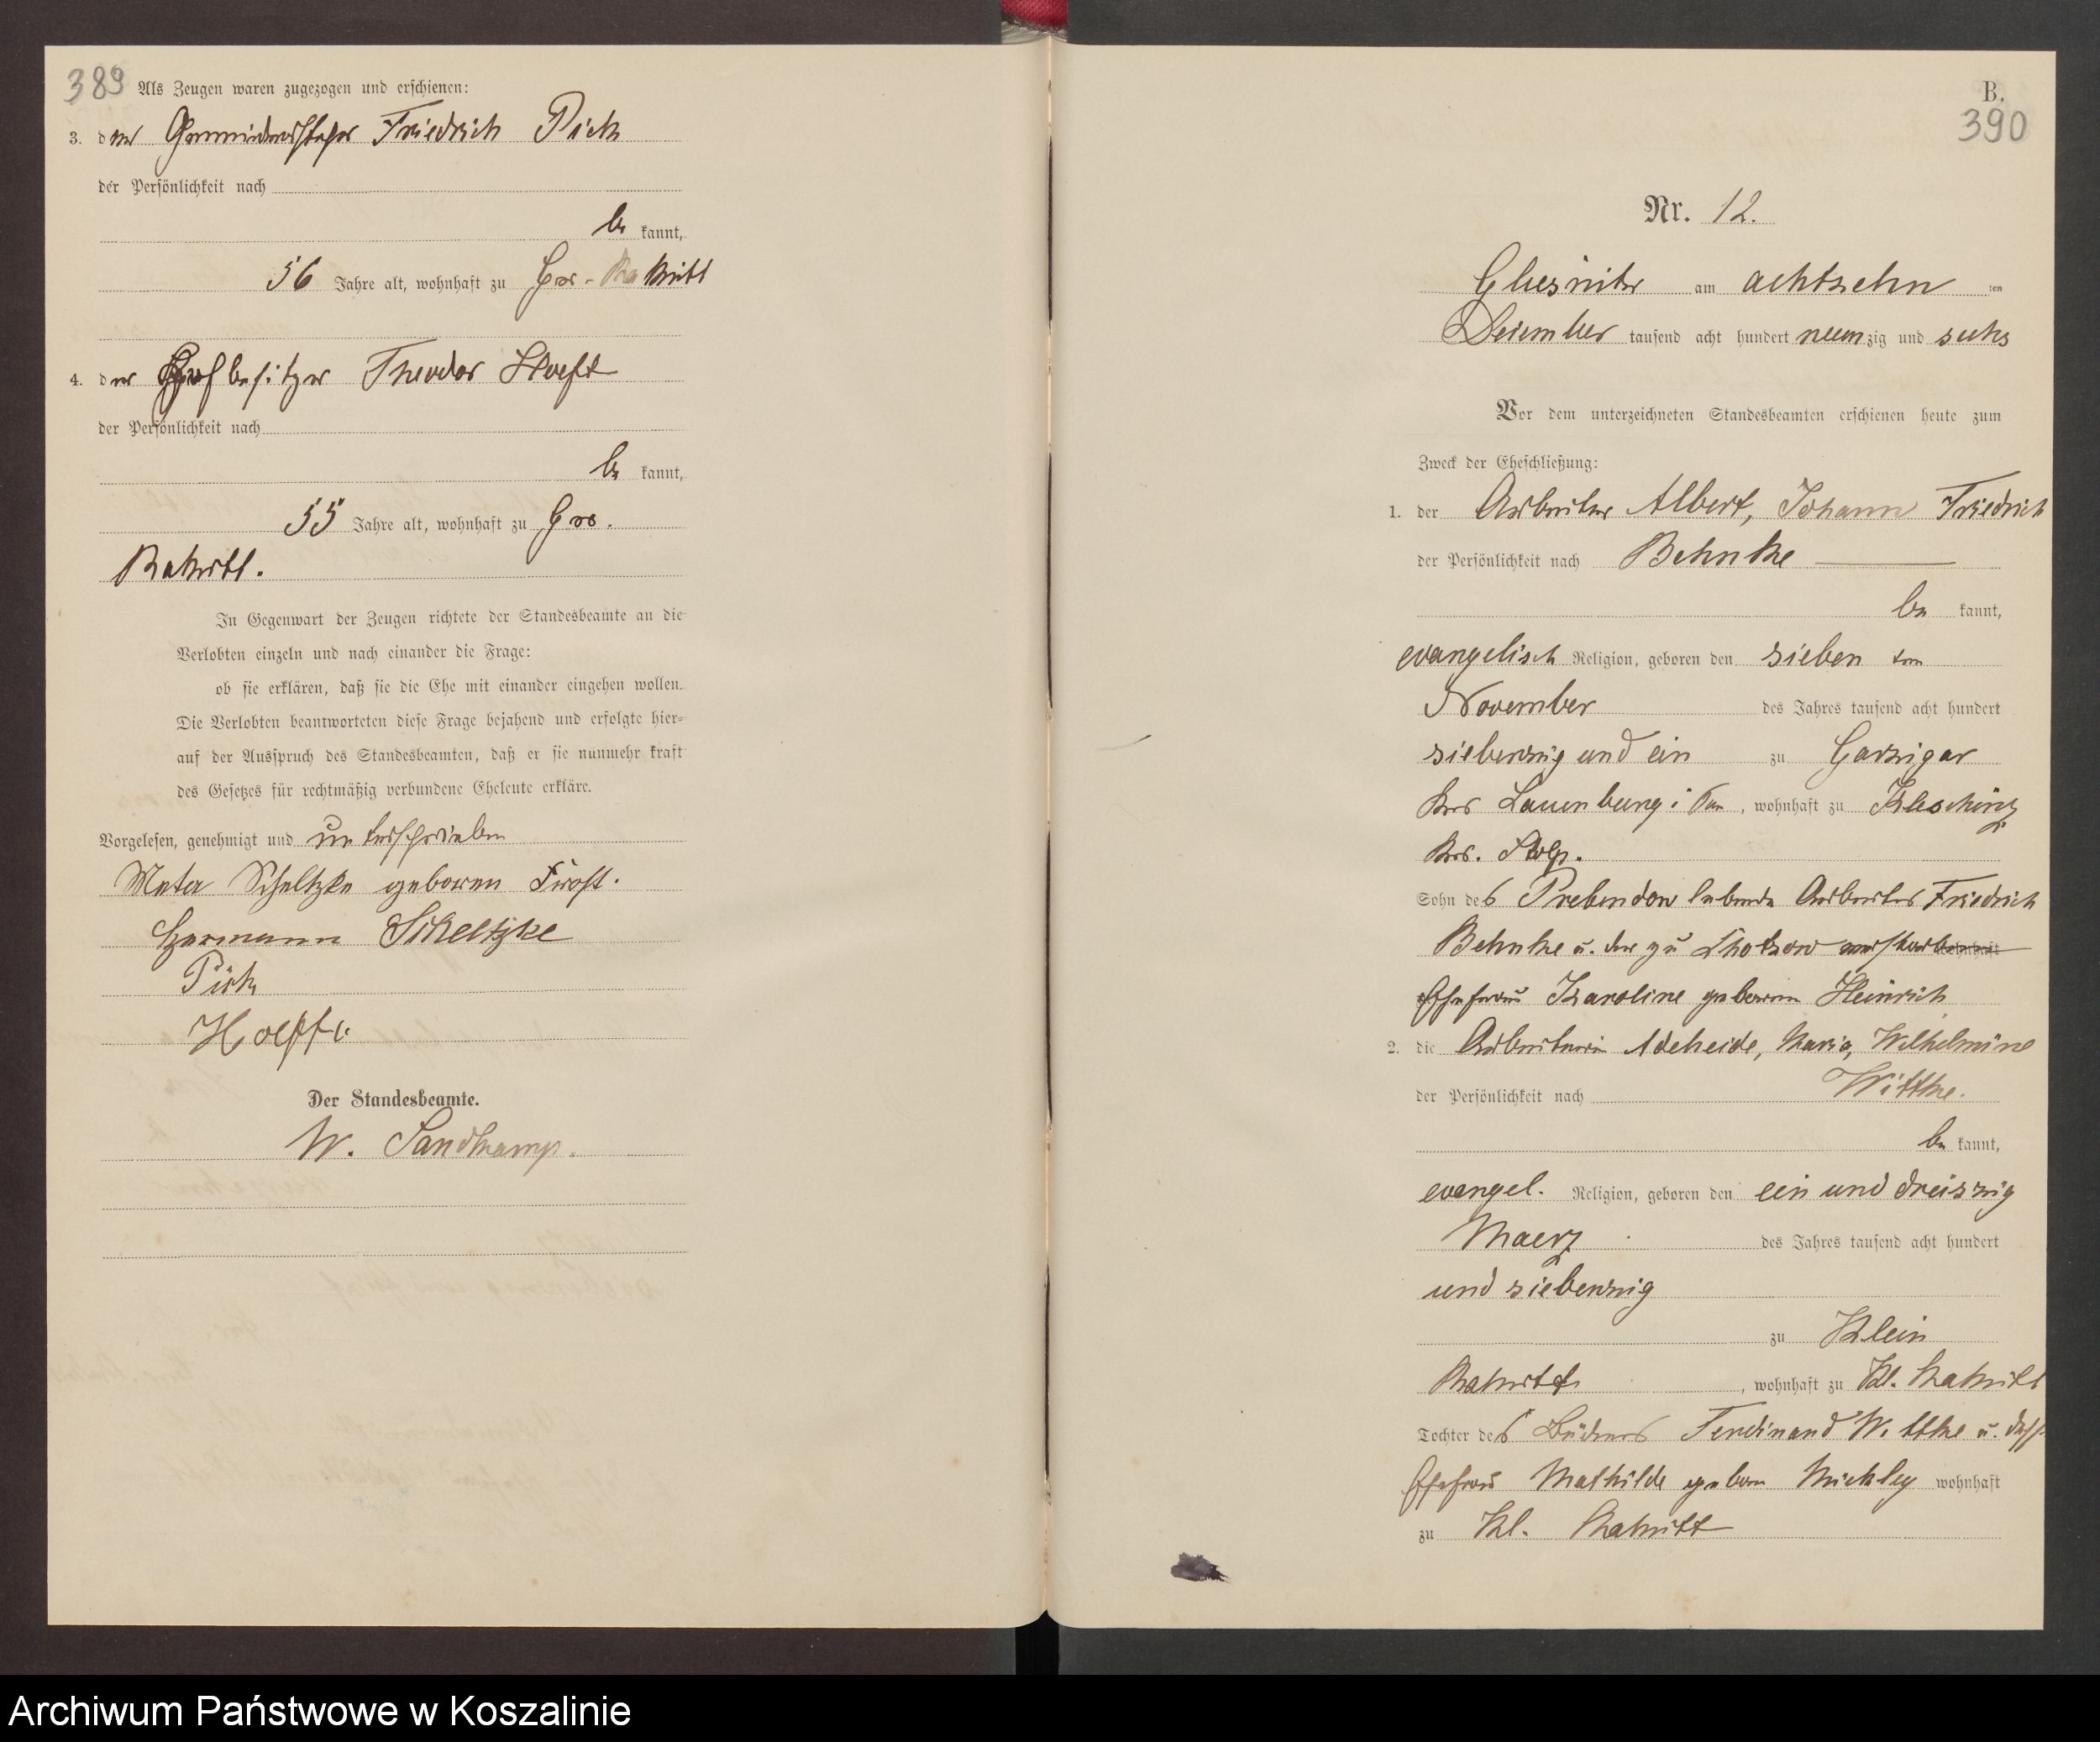 389 Als Zeugen waren zugezogen und erschienen:
3. der Gemeindevorsteher Friedrich Pick
der Persönlichkeit nach
be kannt,
56 Jahre alt, wohnhaft zu Gros-Rakitt
4. der Hofbesitzer Theodor Hoeft
der Persönlichkeit nach
be kannt,
55 Jahre alt, wohnhaft zu Gros.
Rakitt.
In Gegenwart der Zeugen richtete der Standesbeamte an die
Verlobten einzeln und nach einander die Frage:
ob sie erklären, daß sie die Ehe mit einander eingehen wollen.
Die Verlobten beantworteten diese Frage bejahend und erfolgte hier-
auf der Ausspruch des Standesbeamten, daß er sie nunmehr kraft
des Gesetzes für rechtmäßig verbundene Eheleute erkläre.
Vorgelesen, genehmigt und unterschrieben
Meta geboren
Hermann
Pick
Hoefft
Der Standesbeamte.
W. Sandkamp.
B.
390
Nr. 12.
Gliesnitz am achtzehn ten
Dezember tausend acht hundert neunzig und sechs
Vor dem unterzeichneten Standesbeamten erschienen heute zum
Zweck der Eheschließung:
1. der Arbeiter Albert, Johann Friedrich
der Persönlichkeit nach Behnke
be kannt,
evangelisch Religion, geboren den sieben ten
November des Jahres tausend acht hundert
siebenzig und ein zu Garzigar
Krs Lauenburg i Pom, wohnhaft zu Kleschinz
Krs. Stolp.
Sohn des Prebendow lebenden Arbeiters Friedrich
Behnke u. der zu verstorbenen wohnhaft
Ehefrau Karoline geborene Heinrich
2. die Arbeiterin Adeheide, Maria, Wilhelmine
der Persönlichkeit nach Wittke.
be kannt,
evangel. Religion, geboren den ein und dreiszig
Maerz des Jahres tausend acht hundert
und siebenzig
zu Klein
Rakitt, wohnhaft zu Kl. Rakitt
Tochter des Büdners Ferdinand Wittke u. dess
Ehefrau Mathilde geborn Mickley wohnhaft
zu Kl. Rakitt
Archiwum Państwowe w Koszalinie